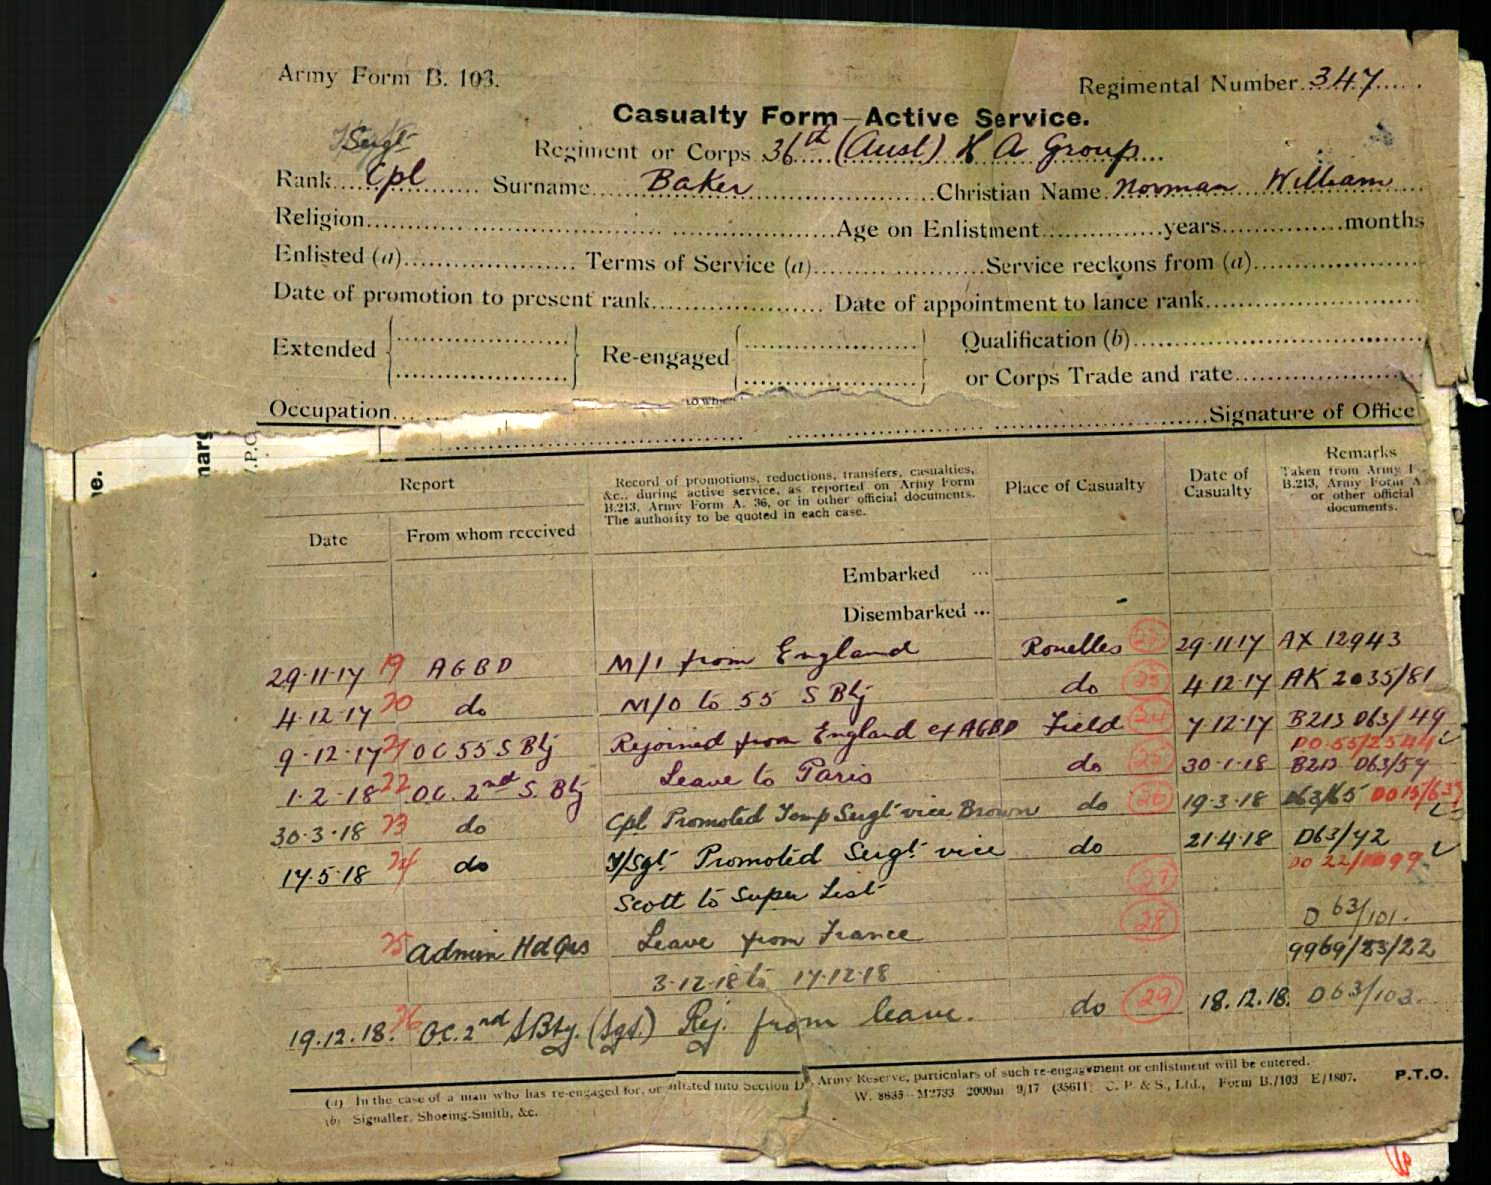 Army Form B. 103.
Regimental Number 347
Casualty Form—Active Service.
Sergt
Regiment or Corps 36th (Aust) H A Group
Rank Cpl Surname Baker Christian Name Norman William
Religion Age on Enlistment years months
Enlisted (a) Terms of Service (a) Service reckons from (a)
Date of promotion to present rank Date of appointment to lance rank
Extended Re-engaged Qualification (b)
or Corps Trade and rate
Occupation Signature of Office
Report
Date From whom received
Record of promotions, reductions, transfers, casualties,
&c., during active service, as reported on Army Form
B.213, Army Form A. 36, or in other official documents.
The authority to be quoted in each case.
Place of Casualty
Date of
Casualty
Remarks
Taken from Army F
B.213, Army Form A
or other official
documents.
Embarked ...
Disembarked ...
29.11.17 19 AGBD M/I from England Rouelles 29.11.17 AX 12943
4.12.17 20 do M/O to 55 S Bty do 23 4.12.17 AK 2035/81
9.12.17 21 OC 55 S Bty Rejoined from England ex AGBD Field 24 7.12.17 B213 D63/49
DO 55/2544
1.2.18 22 OC. 2nd S. Bty Leave to Paris do 25 30.1.18 B213 D63/54
30.3.18 23 do Cpl Promoted Temp Sergt vice Brown do 26 19.3.18 D63/65 DO 15/633
17.5.18 24 do T/Sgt Promoted Sergt vice do 21.4.18 D63/72
DO 22/1099
Scott to Super List 27
28 D 63/101.
25 Admin Hd Qrs Leave from France 9969/23/22
3.12.18 to 17.12.18
19.12.18. 26 OC. 2nd S Bty. (Sgt.) Rej. from leave. do 29 18.12.18. D63/103.
(a) In the case of a man who has re-engaged for, or enlisted into Section D, Army Reserve, particulars of such re-engagement or enlistment will be entered.
(b) Signaller, Shoeing-Smith, &c.
W. 8635—M2733 2000m 9/17 (35611) C. P. & S., Ltd., Form B./103 E/1807.
P.T.O.